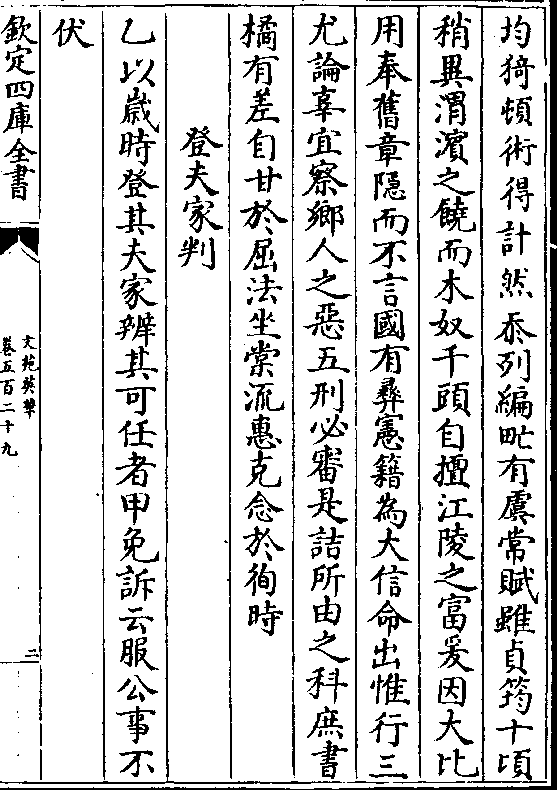 均猗頓術得計然忝列編甿有虞常賦雖貞筠十頃
稍異渭濱之饒而木奴千頭自擅江陵之富爰因大比
用奉舊章隠而不言國有彝憲籍為大信命出惟行三
尤論辜宜察鄉人之惡五刑必審是詰所由之科庶書
橘有差自甘於屈法坐棠流惠克念於徇時
登夫家判
乙以歲時登其夫家辨其可任者甲免訴云服公事不
伏
欽定四庫全書
文苑英華
卷五百二十九
二